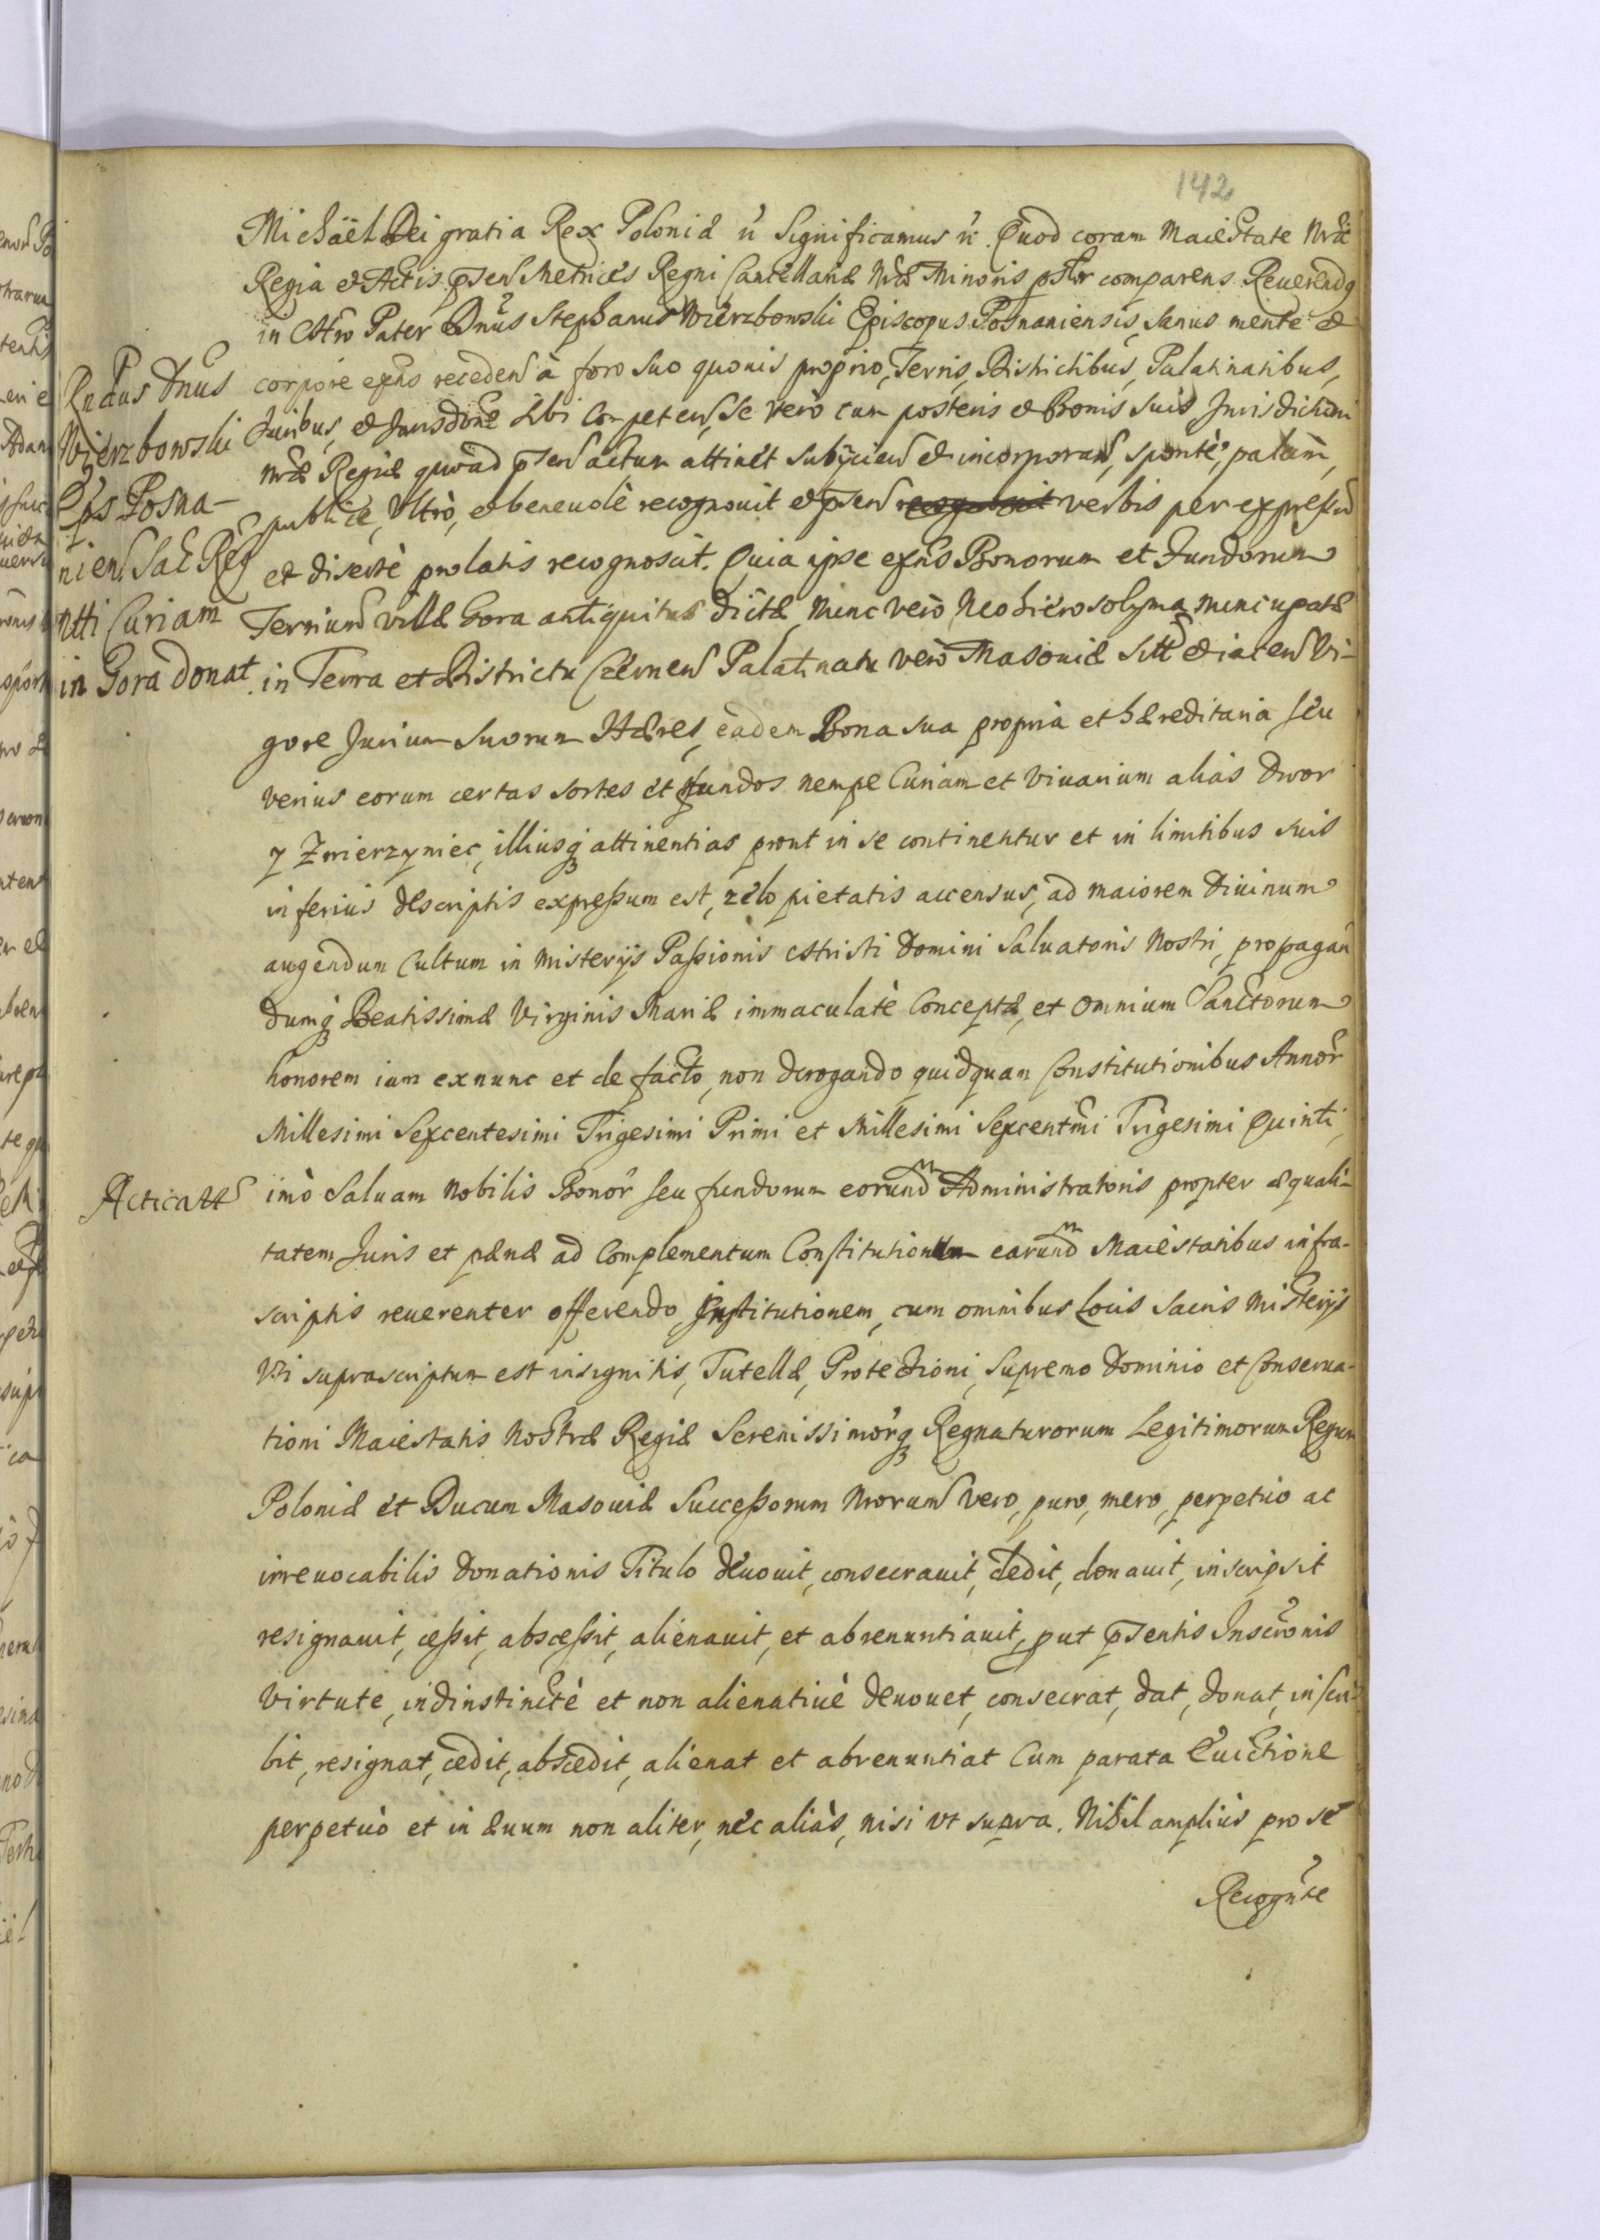 142
Michäel Dei gratia Rex Poloniæ ꝛc Significamus ꝛc. Quod coram Maiestate Nrã
Regia et Actis pñsen Metrices Regni Cancellariæ Nræ Minoris psltr comparens Reuerendq
in Chro Pater Dnus Stephanus Wierzbowski Episcopus Posnaniensis, sanus mente et
corpore exñs receden à foro suo quouis proprio, Terris, Districtibus, Palatinatibus,
Juribus, et Jurisdone sibi competen, se vero cum posteris et Bonis suis Jurisdictioni
Nræ Regiæ quoad pñsen actum attinet subijcien et incorporan, sponte, palàm,
publice, Vltrò, et beneuolè recognouit et pñsen verbis per expressū
et disertè prolatis recognoscit. Quia ipse exñs Bonorum et Fundorum
Terrium villæ Gora antiquitus dictæ, nunc verò Neohierosolyma nuncupatæ
in Terra et Districtu Czernen Palatinatu verò Masouiæ sitt et iacen Vi-
gore Jurium suorum Hæres, eadem Bona sua propria et hæreditaria seu
verius eorum certas sortes et fundos nempe Curiam et Viuarium aliàs Dwor
y Zwierzyniec, illiusq attinentias prout in se continentur et in limitibus suis
inferius descriptis expressum est, zelo pietatis accensus, ad maiorem Diuinum
augendum Cultum in Misterijs Passionis Christi Domini Saluatoris Nostri, propagan
dumq Beatissimæ Virginis Mariæ immaculatè Conceptæ, et omnium Sanctorum
honorem iam exnunc et de facto, non derogando quidquam Constitutionibus Annor
Millesimi Sexcentesimi Trigesimi Primi et Millesimi Sexcentmi Trigesimi Quinti,
imò saluam Nobilis Bonor seu fundorum eorund Administratoris propter æquali-
tatem Juris et pænæ ad Complementum Constitutionum earund Maiestatibus infra-
scriptis reuerenter offerendo Institutionem, cum omnibus Locis Sacris Misterijs
Vti suprascriptum est insignitis, Tutellæ, Protectioni, Supremo Dominio et Conserua-
tioni Maiestatis Nostræ Regiæ Serenissimorq Regnaturorum Legitimorum Regum
Poloniæ et Ducum Masouiæ Successorum Nrorum vero, puro, mero, perpetuo ac
irreuocabilis Donationis Titulo deuouit, consecrauit, dedit, donauit, inscripsit
resignauit, cessit, abscessit, alienauit, et abrenuntiauit, put pñsentis Inscronis
virtute, indinstinctè et non alienatiuè deuouet, consecrat, dat, donat, inscri-
bit, resignat, cedit, abscedit, alienat et abrenuntiat Cum parata Euictione
perpetuò et in æuum non aliter, nec aliàs, nisi vt supra. Nihil ampliùs pro se
Recognte
Rndus Dnus
Wierzbowski
Eps Posna-
nien Sac Reg
Mtti Curiam
in Gora donat
Acticatt